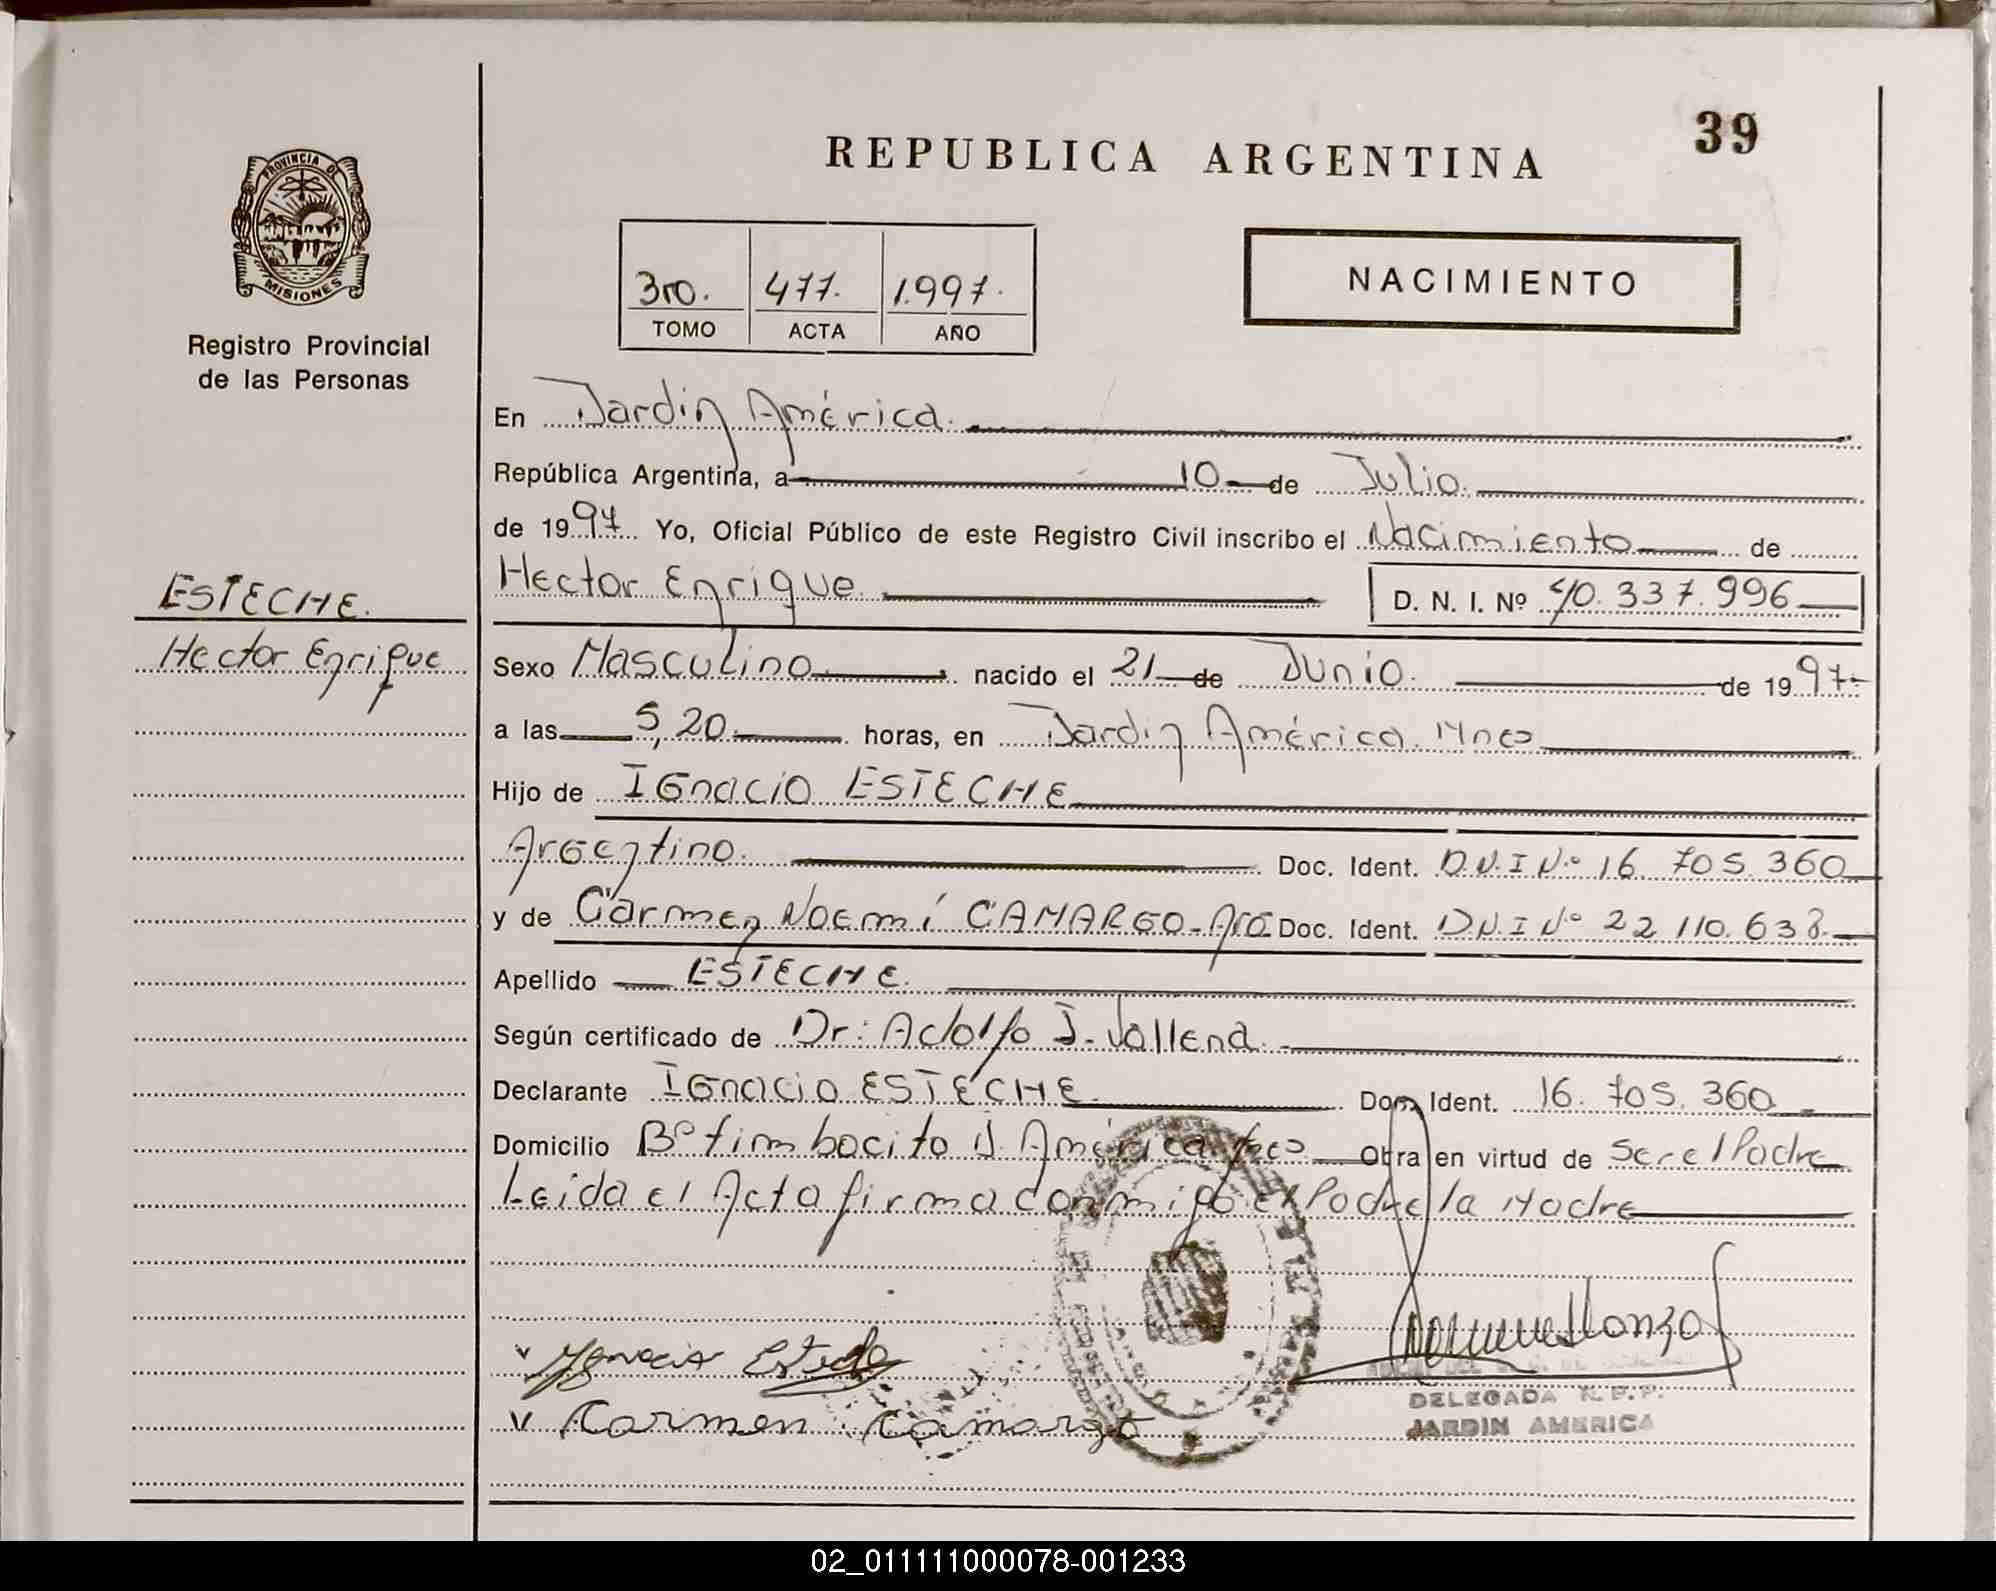 39
REPUBLICA ARGENTINA
PROVINCIA DE
MISIONES
Registro Provincial
de las Personas
NACIMIENTO
3ro. 477. 1.997.
TOMO ACTA AÑO
En Jardin América.
República Argentina, a 10 de Julio.
de 1997. Yo, Oficial Público de este Registro Civil inscribo el Nacimiento de
Hector Enrique. D. N. I. Nº 40.337.996
ESTECHE.
Hector Enrique
Sexo Masculino nacido el 21 de Junio. de 1997.
a las 5,20 horas, en Jardin América. Mnes
Hijo de IGnacio ESTECHE
Argentino. Doc. Ident. D.N.I Nº 16 705.360
y de Carmen Noemí CAMARGO-ArG Doc. Ident. D.N.I Nº 22 110.638.
Apellido ESTECHE.
Según certificado de Dr: Adolfo J. Vallend.
Declarante IGnacio ESTECHE. Doc. Ident. 16.705.360
Domicilio Bº timbocito J. América Mnes Obra en virtud de Ser el Padre
Leida el Acta firma conmigo el Padre la Madre
Ygnacio Esteche
Carmen Camargo
DELEGADA R.P.P.
JARDIN AMERICA
02_011111000078-001233